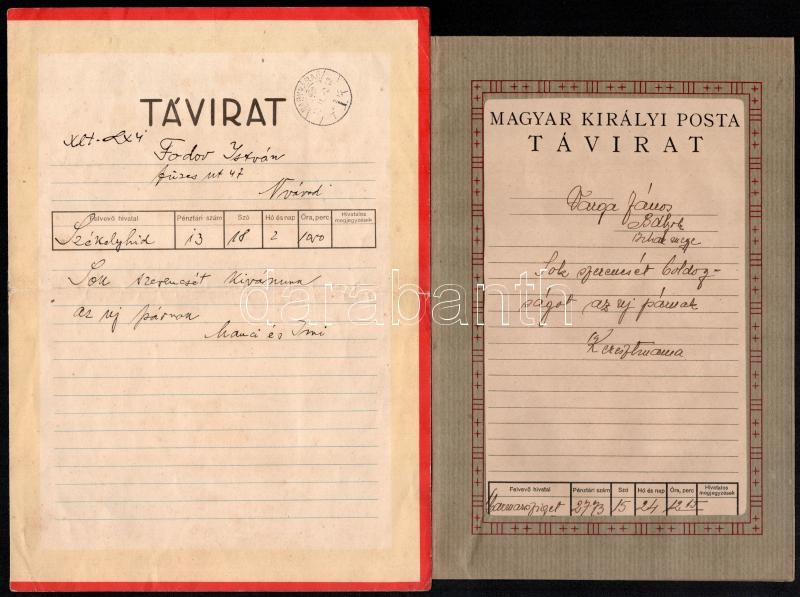 TÁVIRAT
Xlt-LX4
Fodor István
füzes ut 47
Nvárad
Felvevő hivatal Pénztári szám Szó Hó és nap Óra, perc Hivatalos megjegyzések
Székelyhid 13 18 2 1000
Sok szerencsét kivánunk
az uj párnak
Manci és Imi
MAGYAR KIRÁLYI POSTA
TÁVIRAT
Varga János
Bályok
Bihar megye
Sok szerencsét boldog-
ságot az uj párnak
Keresztmama
Felvevő hivatal Pénztári szám Szó Hó és nap Óra, perc Hivatalos megjegyzések
Marmarosziget 2773 15 24 12 15
darabanth